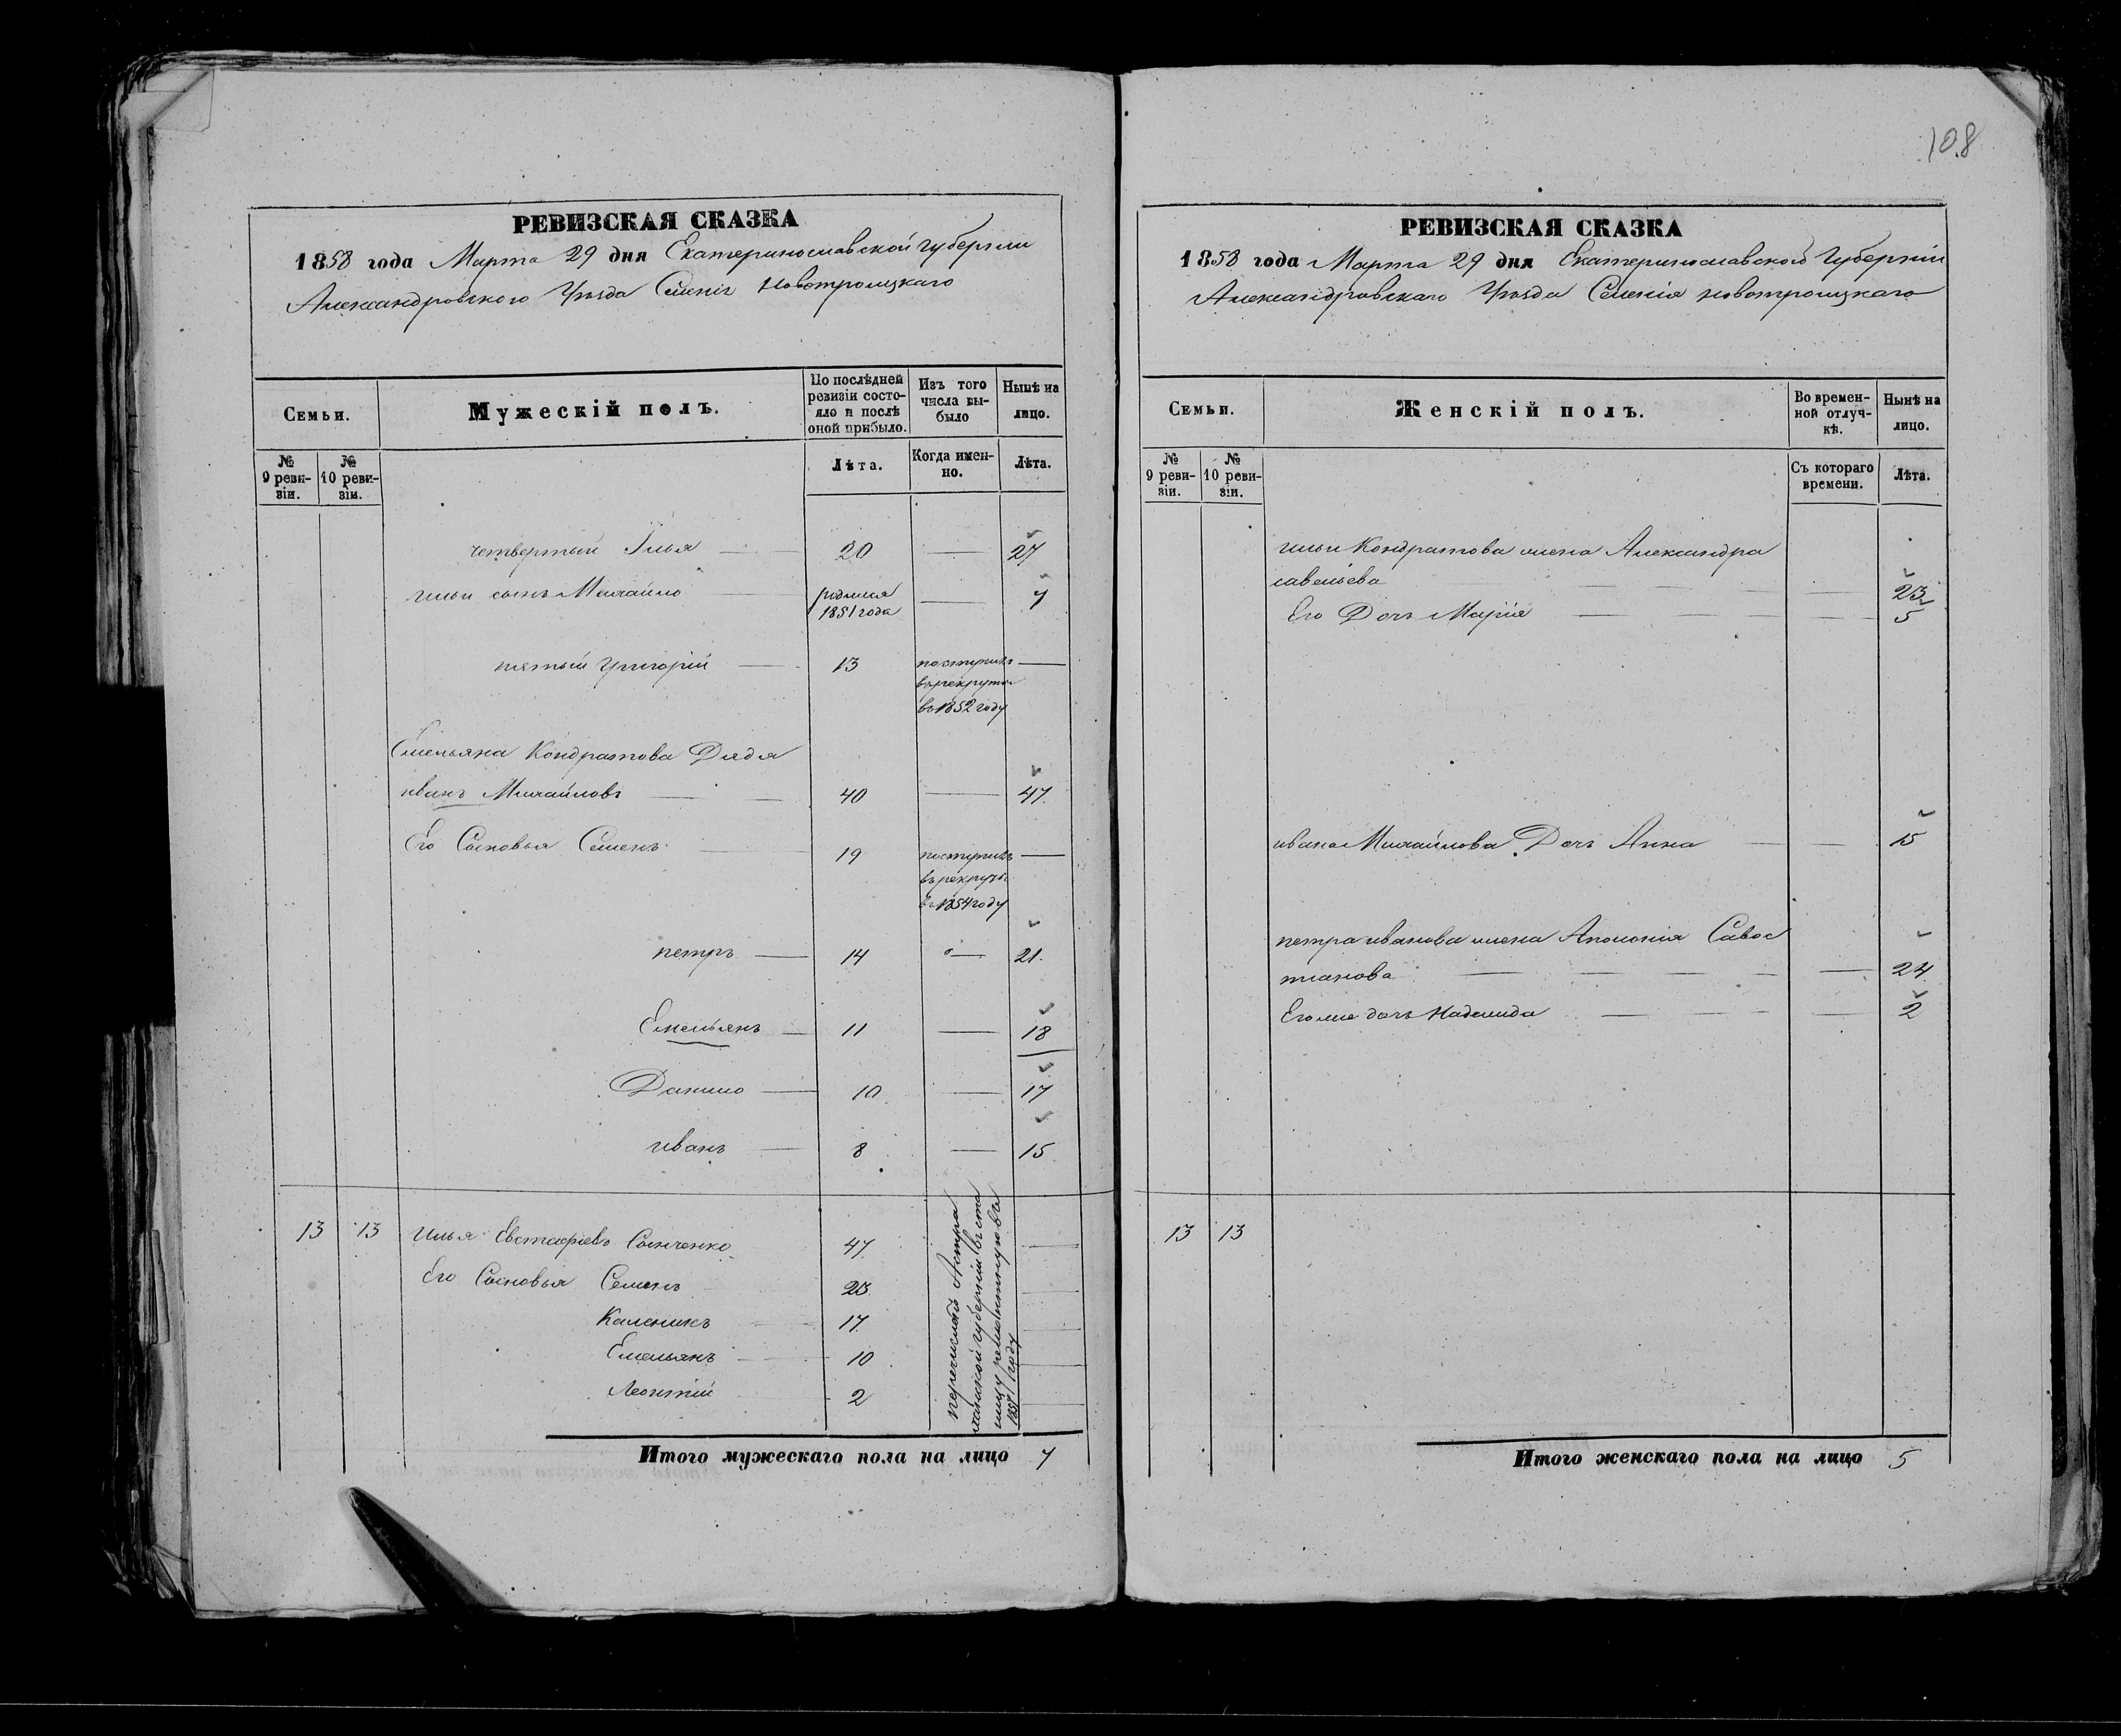 108
РЕВИЗСКАЯ СКАЗКА
1858 года Марта 29 дня Екатеринославской Губернии
Александровского Уѣзда Селенія Новотроицкаго
Семьи.
Мужескій полъ.
По послѣдней ревизіи состояло и послѣ оной прибыло.
Изъ того числа выбыло
Нынѣ на лицо.
№ 9 ревизіи.
№ 10 ревизіи.
Лѣта.
Когда именно.
Лѣта.
четвертый Илья — 20 — 27
ильи сынъ Михайло — родился 1851 года — 7
пятый Григорій — 13 поступилъ —
въ рекруты
въ 1852 году
Емельяна Кондратова Дядя
иванъ Михайловъ — 40 — 47.
Его Сыновья Семенъ — 19 поступилъ —
въ рекруты
въ 1854 году
петръ — 14 — 21.
Емельянъ — 11 — 18
Данило — 10 — 17
иванъ — 8 — 15
13 13 Илья Евстафіевъ 47. —
Его Сыновья Семенъ —
Каленикъ — 17. —
Емельянъ — 10 —
Леонтій — 2 —
перечисленъ Астра
ханской губерніи въ ста
ницу
1851 году
Итого мужескаго пола на лицо 7
РЕВИЗСКАЯ СКАЗКА
1858 года Марта 29 дня Екатеринославского Губерніи
Александровскаго Уѣзда Селенія новотроицкаго
Семьи.
Женскій полъ.
Во временной отлучкѣ.
Нынѣ на лицо.
№ 9 ревизіи.
№ 10 ревизіи.
Съ котораго времени.
Лѣта.
ильи Кондратова жена Александра
савельева — 23
Его Дочь Марія — 5
ивана Михайлова Дочь Анна — 15
петра иванова жена Аполонія Савос
тианова — 24
Его же дочь Надежда — 2
13 13
Итого женскаго пола на лицо 5